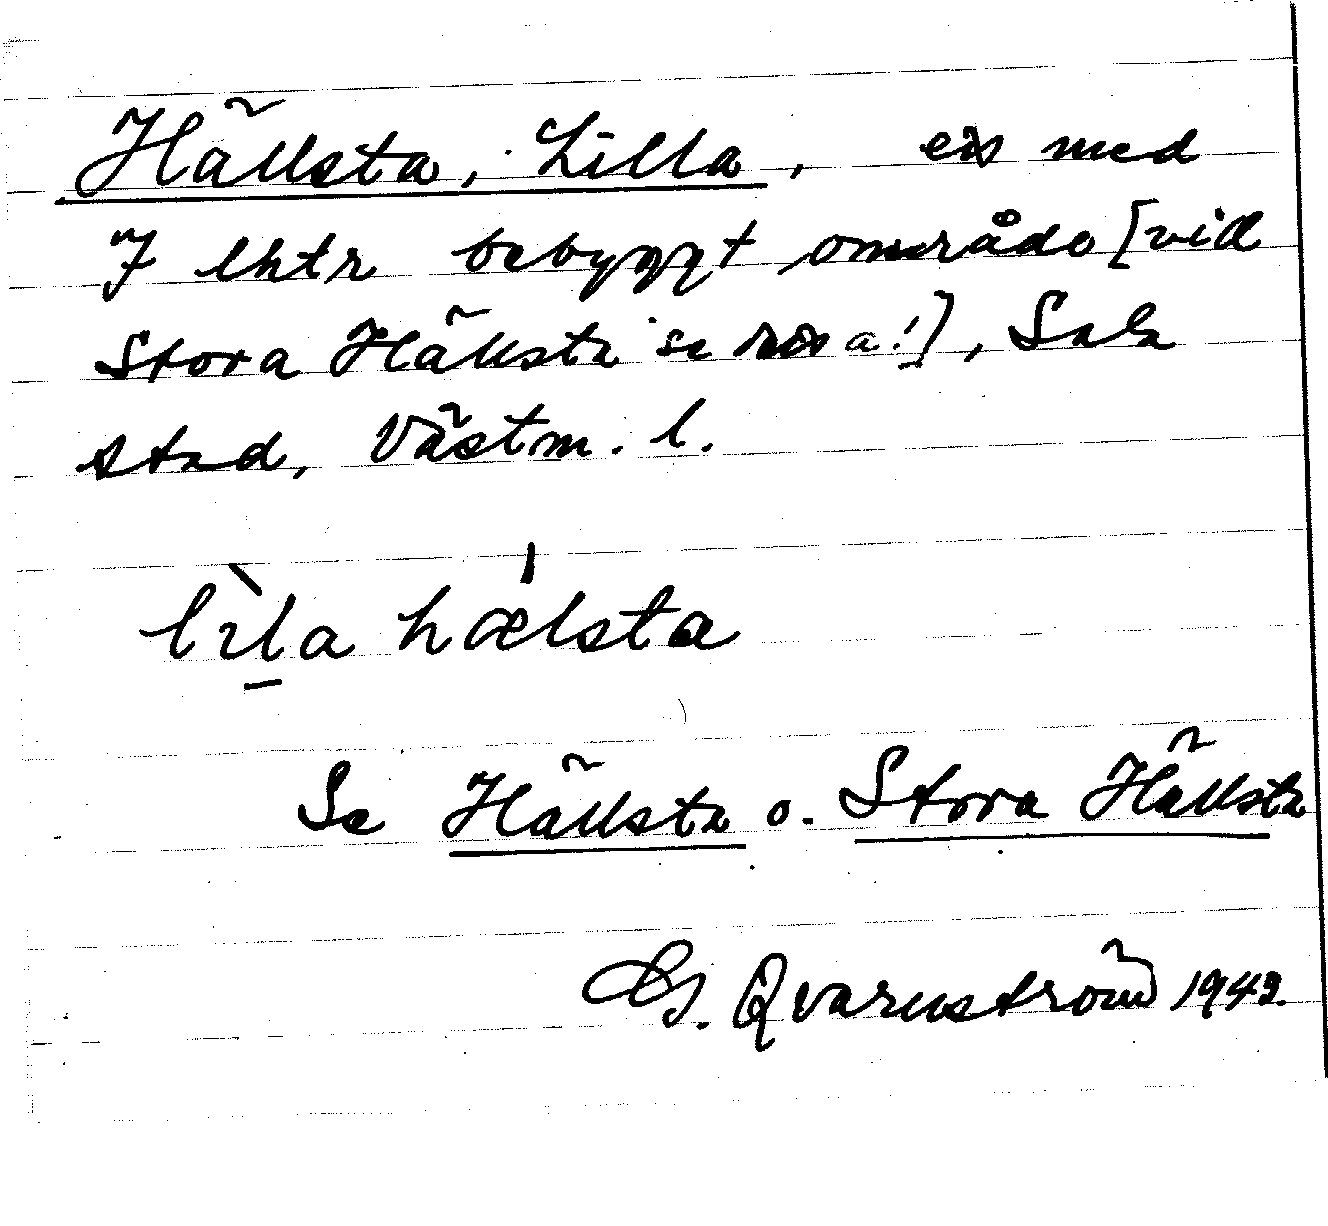 Hällsta, Lilla, eis med
7 lhtr bebyggt område [vid
Stora Hällsta se a!], Sala
stad, Västm. l.
lìla hǽlsta
Se Hällsta o. Stora Hällsta
G. Qvarnström 1942.